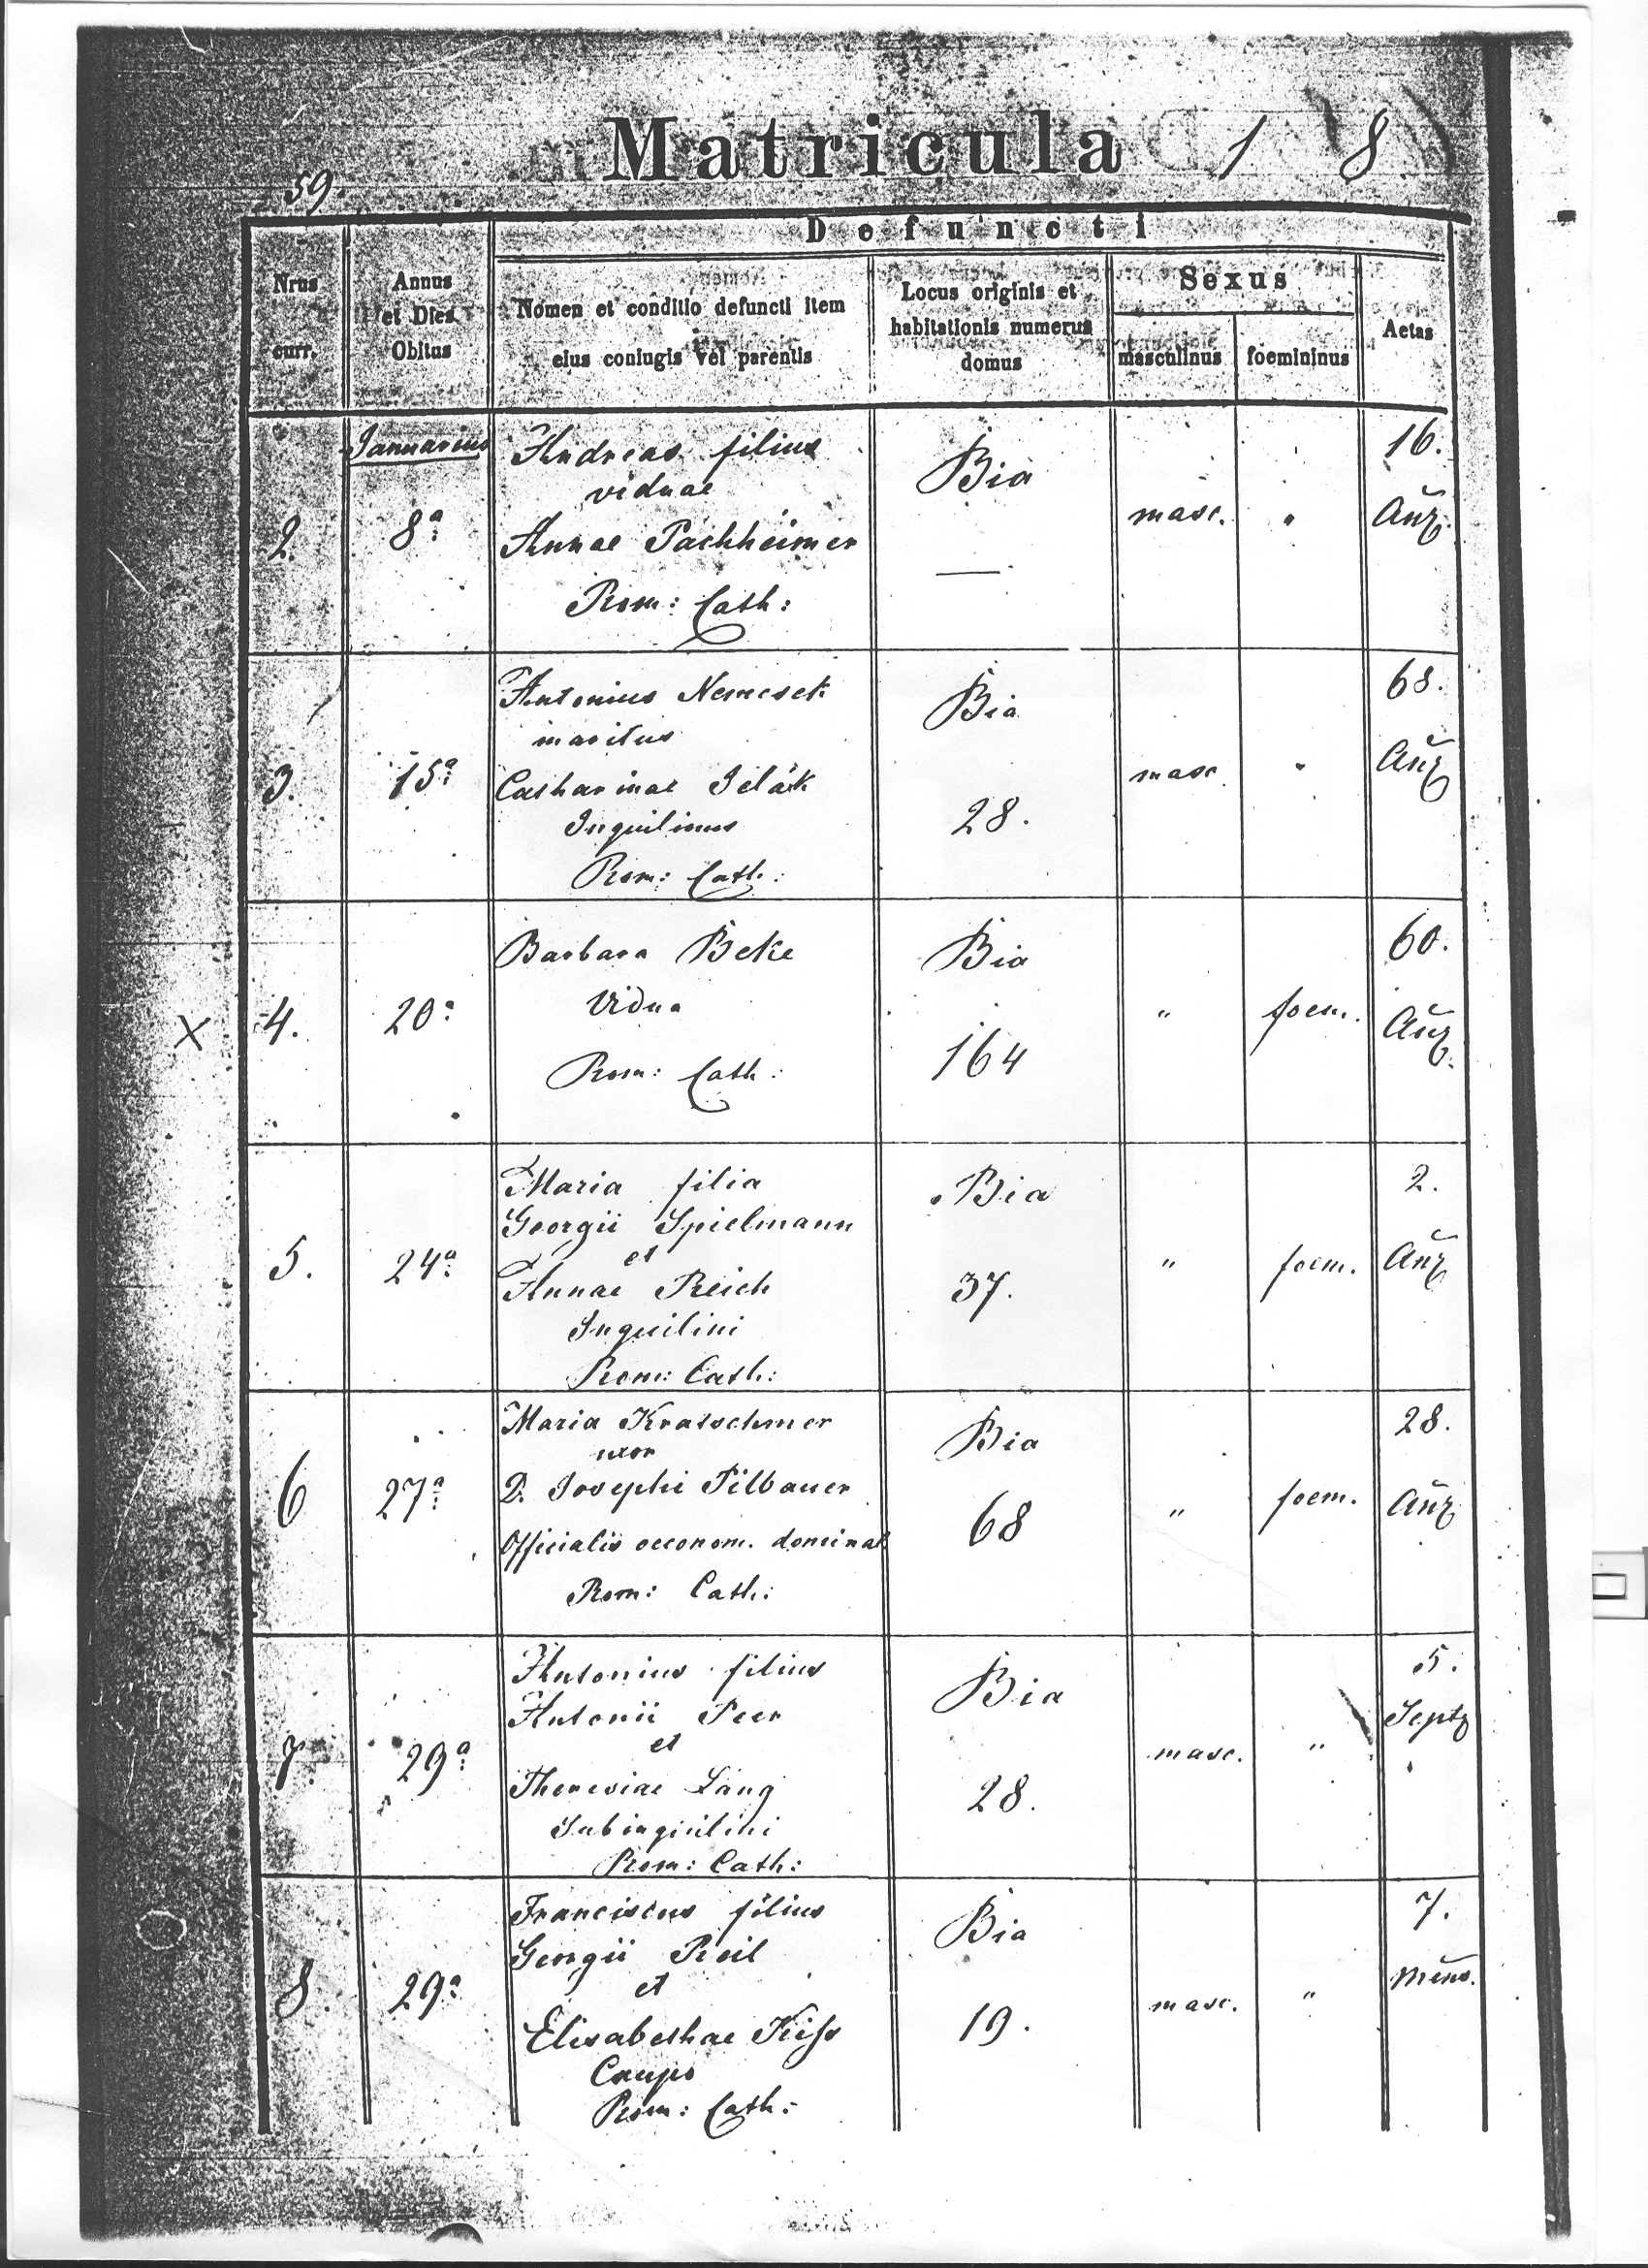 Matricula 1 8
59.
Defuncti
Nrus
curr.
Annus
et Dies
Obitus
Nomen et conditio defuncti item
eius coniugis vel parentis
Locus originis et
habitationis numerus
domus
Sexus
masculinus
foemininus
Aetas
Januarius
2.
8ª
Andreas filius
viduae
Annae Pachheimer
Rom: Cath:
Bia
—
masc.
"
16.
Añz.
3.
15ª
Antonius Nemesek
maritus
Catharinae Jelák
Inquilinus
Rom: Cath:
Bia
28.
masc
"
68.
Añz
X
4.
20ª
Barbara Beke
Vidua
Rom: Cath:
Bia
164
"
foem.
60.
Añz.
5.
24ª
Maria filia
Georgii Spielmann
et
Annae Reich
Inquilini
Rom: Cath:
Bia
37.
"
foem.
2.
Añz
6
27ª
Maria Kratschmer
uxor
D. Josephi Pilbauer
Officialis oeconom. dominal
Rom: Cath:
Bia
68
"
foem.
28.
Añz
7.
29ª
Antonius filius
Antonii Peer
et
Theresiae Lang
Subinquilini
Rom: Cath:
Bia
28.
masc.
"
5.
Septz
8.
29ª
Franciscus filius
Georgii Reil
et
Elisabethae Kiss
Caupo
Rom: Cath:
Bia
19.
masc.
"
7.
Mens.